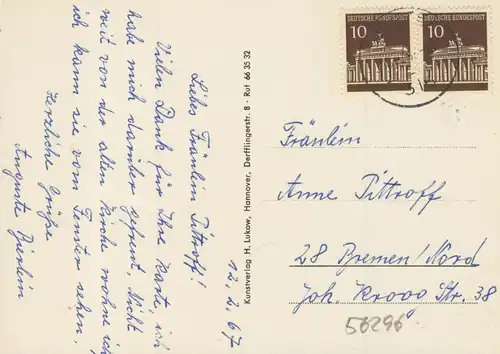 12. 2. 67
Liebes Fräulein Tittroff!
Vielen Dank für Ihre Karte, ich
habe mich darüber gefreut. Nicht
weit von der alten Kirche wohne ich
ich kann sie vom Fenster sehen.
Herzliche Grüße
Auguste
Kunstverlag H. Lukow, Hannover, Derfflingerstr. 8 - Ruf 66 35 32
10 DEUTSCHE BUNDESPOST
10 DEUTSCHE BUNDESPOST
Fräulein
Anne Tittroff
28 Bremen/Nord
Joh. Krooo Str. 38
56296